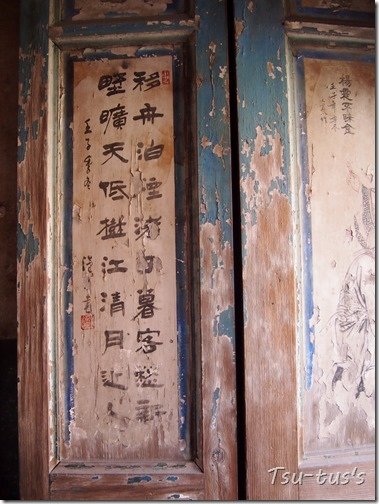 移舟泊煙渚日暮客愁新
野曠天低樹江清月近人
壬子季冬
書
楊震 金
壬子年冬
Tsu-tus's